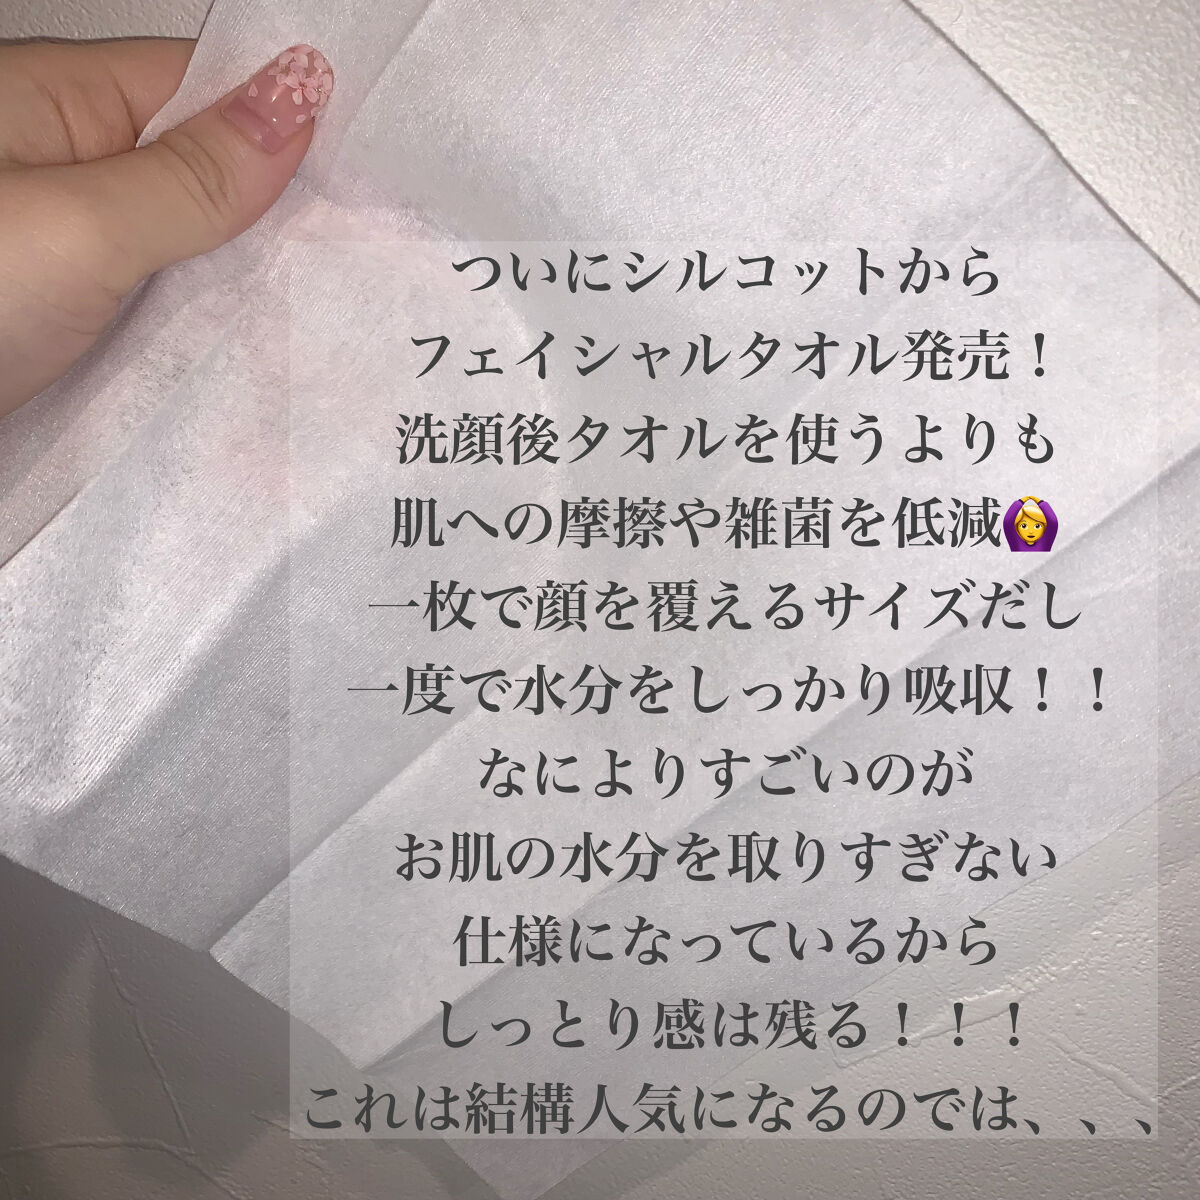 ついにシルコットから
フェイシャルタオル発売！
洗顔後タオルを使うよりも
肌への摩擦や雑菌を低減🙆‍♀️
一枚で顔を覆えるサイズだし
一度で水分をしっかり吸収！！
なによりすごいのが
お肌の水分を取りすぎない
仕様になっているから
しっとり感は残る！！！
これは結構人気になるのでは、、、